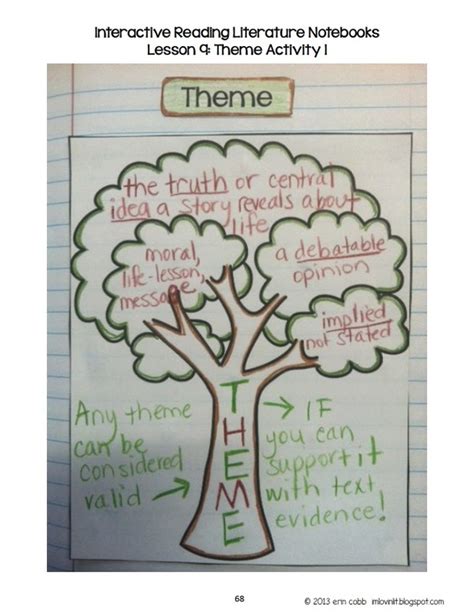 Interactive Reading Literature Notebooks
Lesson 9: Theme Activity 1
Theme
the truth or central
idea a story reveals about
life
moral,
life-lesson,
message
a debatable
opinion
implied
not stated
THEME
Any theme
can be
considered
valid →
→ IF
you can
support it
with text
evidence!
68
© 2013 erin cobb imlovinlit.blogspot.com